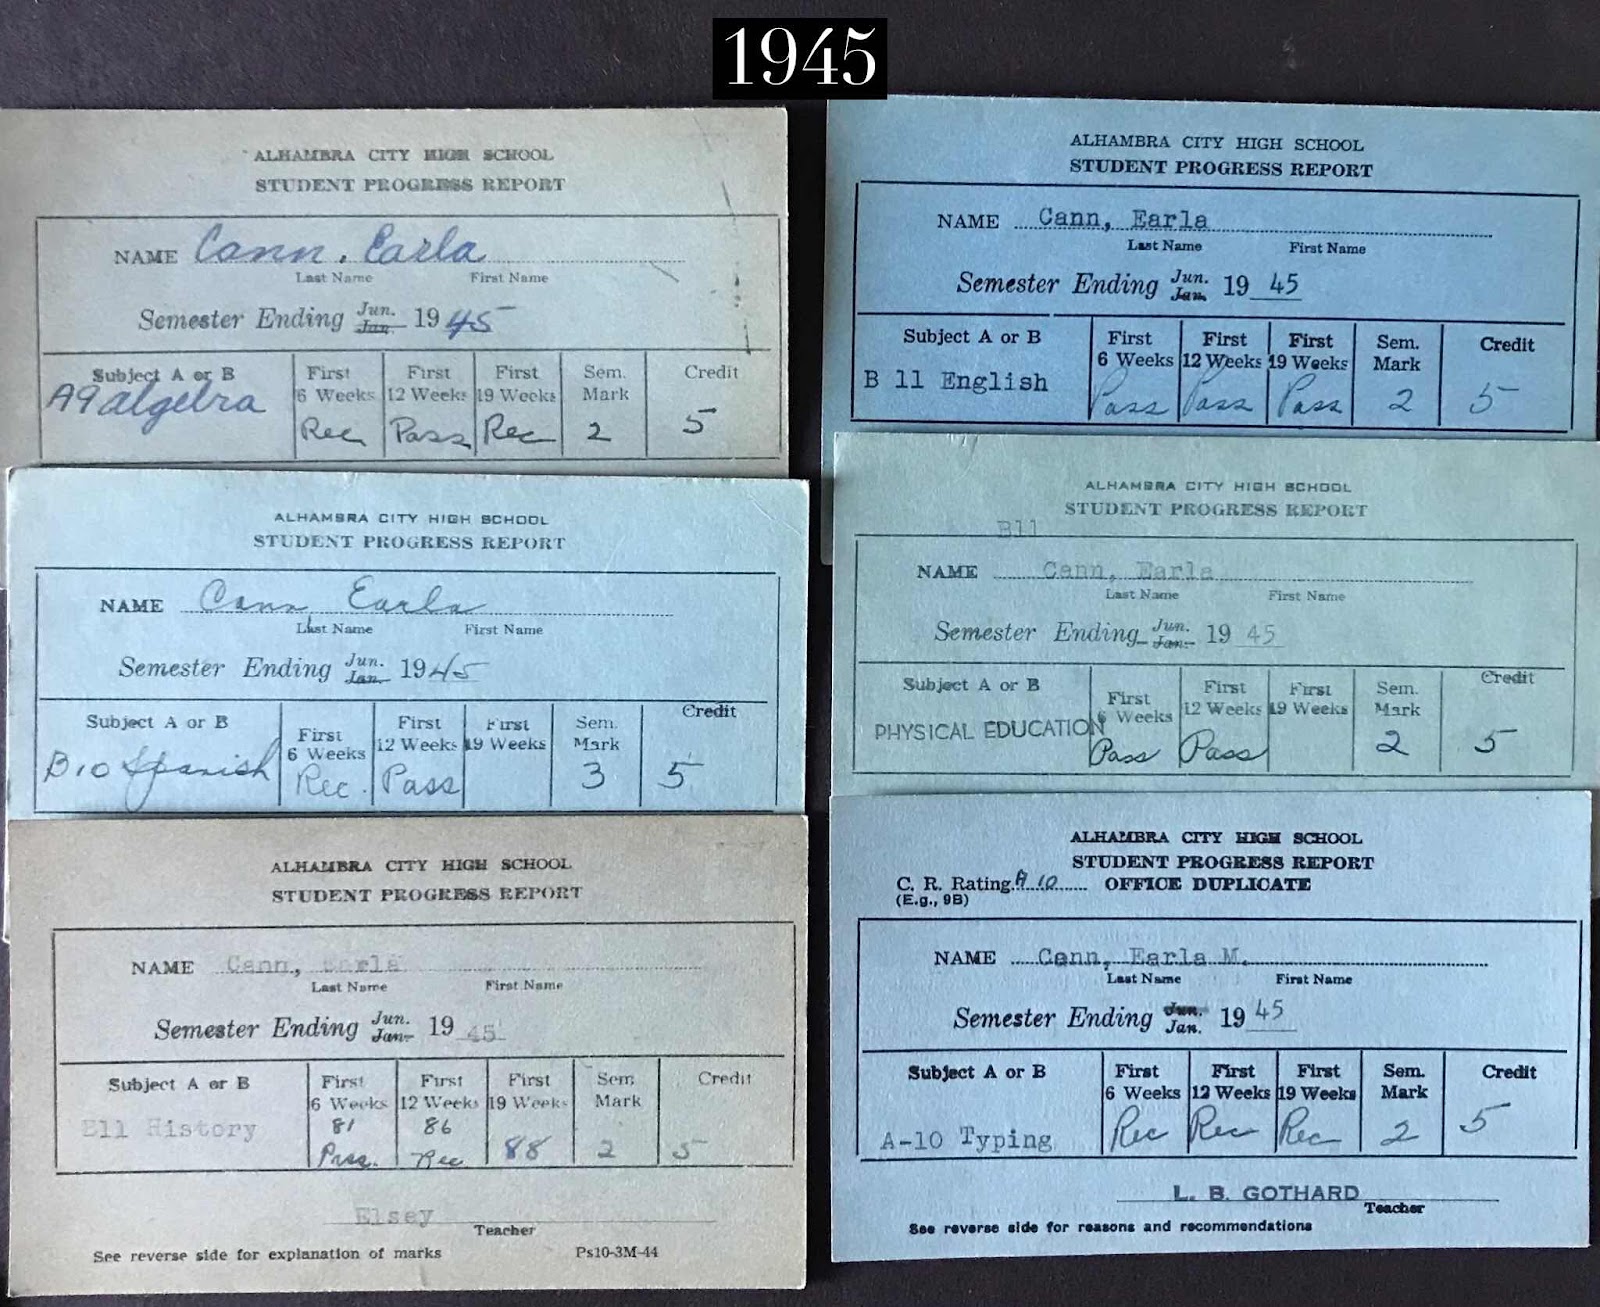 1945
ALHAMBRA CITY HIGH SCHOOL
STUDENT PROGRESS REPORT
NAME Cann, Earla
Last Name First Name
Semester Ending Jun. Jan. 1945
Subject A or B First 6 Weeks First 12 Weeks First 19 Weeks Sem. Mark Credit
A9 algebra Rec Pass Rec 2 5
ALHAMBRA CITY HIGH SCHOOL
STUDENT PROGRESS REPORT
NAME Cann Earla
Last Name First Name
Semester Ending Jun. Jan. 1945
Subject A or B First 6 Weeks First 12 Weeks First 19 Weeks Sem. Mark Credit
B10 Spanish Rec. Pass 3 5
ALHAMBRA CITY HIGH SCHOOL
STUDENT PROGRESS REPORT
NAME Cann, Earla
Last Name First Name
Semester Ending Jun. Jan. 1945
Subject A or B First 6 Weeks First 12 Weeks First 19 Weeks Sem. Mark Credit
81 86
B11 History Pass. Rec 88 2 5
Elsey
Teacher
See reverse side for explanation of marks Ps10-3M-44
ALHAMBRA CITY HIGH SCHOOL
STUDENT PROGRESS REPORT
NAME Cann, Earla
Last Name First Name
Semester Ending Jun. Jan. 1945
Subject A or B First 6 Weeks First 12 Weeks First 19 Weeks Sem. Mark Credit
B 11 English Pass Pass Pass 2 5
ALHAMBRA CITY HIGH SCHOOL
STUDENT PROGRESS REPORT
B11
NAME Cann, Earla
Last Name First Name
Semester Ending Jun. Jan. 1945
Subject A or B First 6 Weeks First 12 Weeks First 19 Weeks Sem. Mark Credit
PHYSICAL EDUCATION Pass Pass 2 5
ALHAMBRA CITY HIGH SCHOOL
STUDENT PROGRESS REPORT
C. R. Rating A 10 OFFICE DUPLICATE
(E.g., 9B)
NAME Cann, Earla M.
Last Name First Name
Semester Ending Jun. Jan. 1945
Subject A or B First 6 Weeks First 12 Weeks First 19 Weeks Sem. Mark Credit
A-10 Typing Rec Rec Rec 2 5
L. B. GOTHARD
Teacher
See reverse side for reasons and recommendations